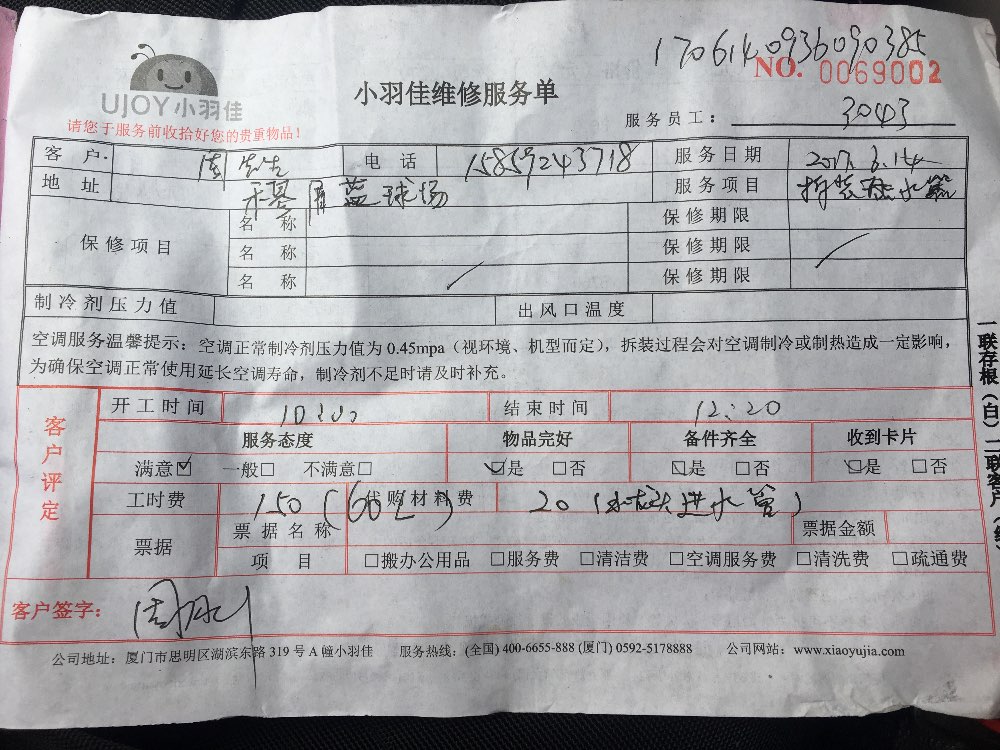 1706140936090385
NO. 0069002
UJOY小羽佳
小羽佳维修服务单
请您于服务前收拾好您的贵重物品！
服务员工： 3043
客 户 周先生 电 话 15859243718 服务日期 2017.6.14
地 址 禾基 蓝球场 服务项目 拆装热水器
保修项目
名 称 保修期限
名 称 保修期限
名 称 保修期限
制冷剂压力值 出风口温度
空调服务温馨提示：空调正常制冷剂压力值为 0.45mpa（视环境、机型而定），拆装过程会对空调制冷或制热造成一定影响，
为确保空调正常使用延长空调寿命，制冷剂不足时请及时补充。
客户评定
开工时间 10:00 结束时间 12:20
服务态度 物品完好 备件齐全 收到卡片
满意☑ 一般□ 不满意□ ☑是 □否 ☑是 □否 ☑是 □否
工时费 150（60L） 代购材料费 20（水龙头进水管）
票据 票据名称 票据金额
项 目 □搬办公用品 □服务费 □清洁费 □空调服务费 □清洗费 □疏通费
客户签字：
公司地址：厦门市思明区湖滨东路 319 号 A 幢小羽佳 服务热线：(全国) 400-6655-888 (厦门) 0592-5178888 公司网站：www.xiaoyujia.com
一联存根（白）二联客户（